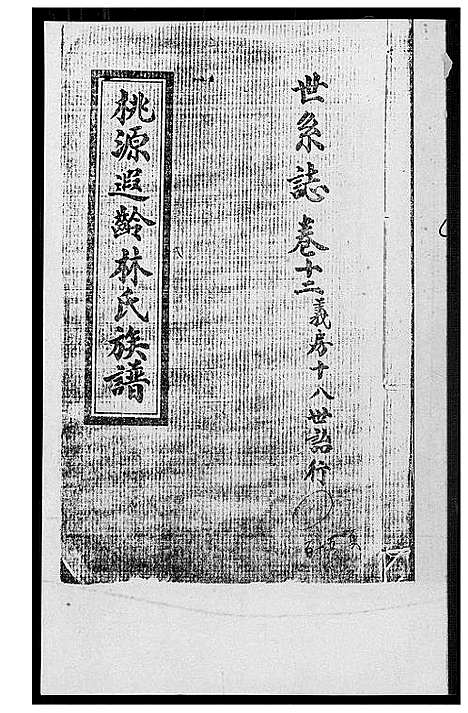 世系誌 卷十二 義房十八世詒行
桃源遐齡林氏族譜